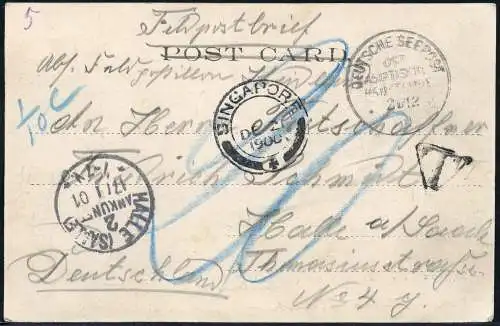 5
Feldpostbrief
POST CARD
Abs. Feldpostillon
DEUTSCHE SEEPOST
OST
ASIATISCHE
HAUPTLINIE
21/12
1/10 C
SINGAPORE
DE 2
1900
an Herrn Postschaffner
T
Schmidt
HALLE (SAALE)
ANKUNFT
17/1 01
2
Halle a/Saale
Deutschland Thomasiusstrasse
No 4 I.